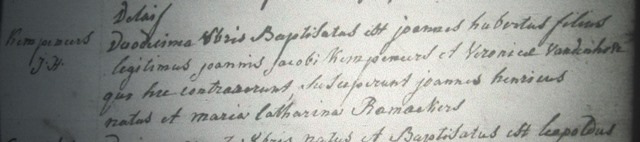 Delais
Kempeneers Duodecima Xbris Baptisatus est joannes hubertus filius
J.H. legitimus joannis jacobi Kempeneurs et Veronicæ Vandenhove
qui hic contraxerunt, susceperunt joannes henricus
natus et maria Catharina Ramaekers
Xbris natus et Baptisatus est leopoldus